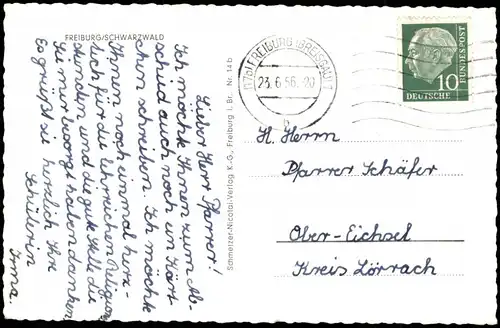 FREIBURG/SCHWARZWALD
Lieber Herr Pfarrer!
Ich möchte Ihnen zum Ab-
schied auch noch ein Kärt-
chen schreiben. Ich möchte
Ihnen noch einmal herz-
lich für die lehrreichen Religions
stunden und die gute Stelle die
Sie mir besorgt haben danken
Es grüßt sie herzlich Ihre
Schülerin
Irma
Schmelzer-Nicolai-Verlag K.-G., Freiburg i. Br. Nr. 14 b
(17b) FREIBURG (BREISGAU) 1
23.6.56.-20
b
10
DEUTSCHE
BUNDESPOST
H. Herrn
Pfarrer Schäfer
Ober-Eichsel
Kreis Lörrach